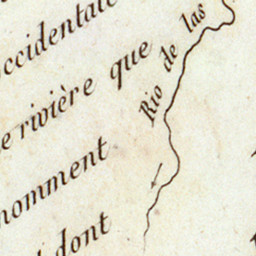 occidentale
rivière que
nomment
dont
Rio de las